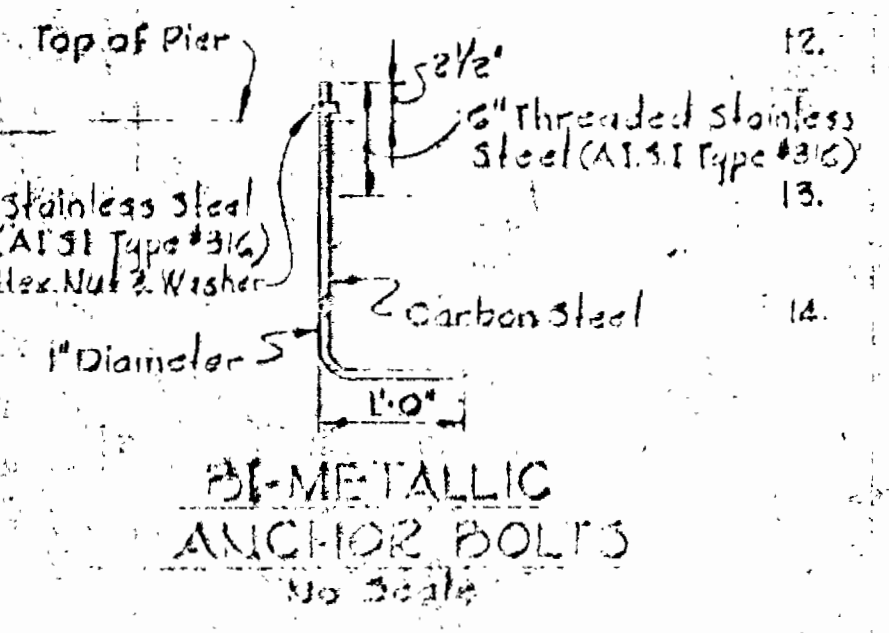 Top of Pier
2 1/2"
12.
6" Threaded Stainless
Steel (A.I.S.I Type #316)
13.
Stainless Steel
(AISI Type #316)
Hex. Nut & Washer
Carbon Steel
14.
1" Diameter
1'-0"
BI-METALLIC
ANCHOR BOLTS
No Scale